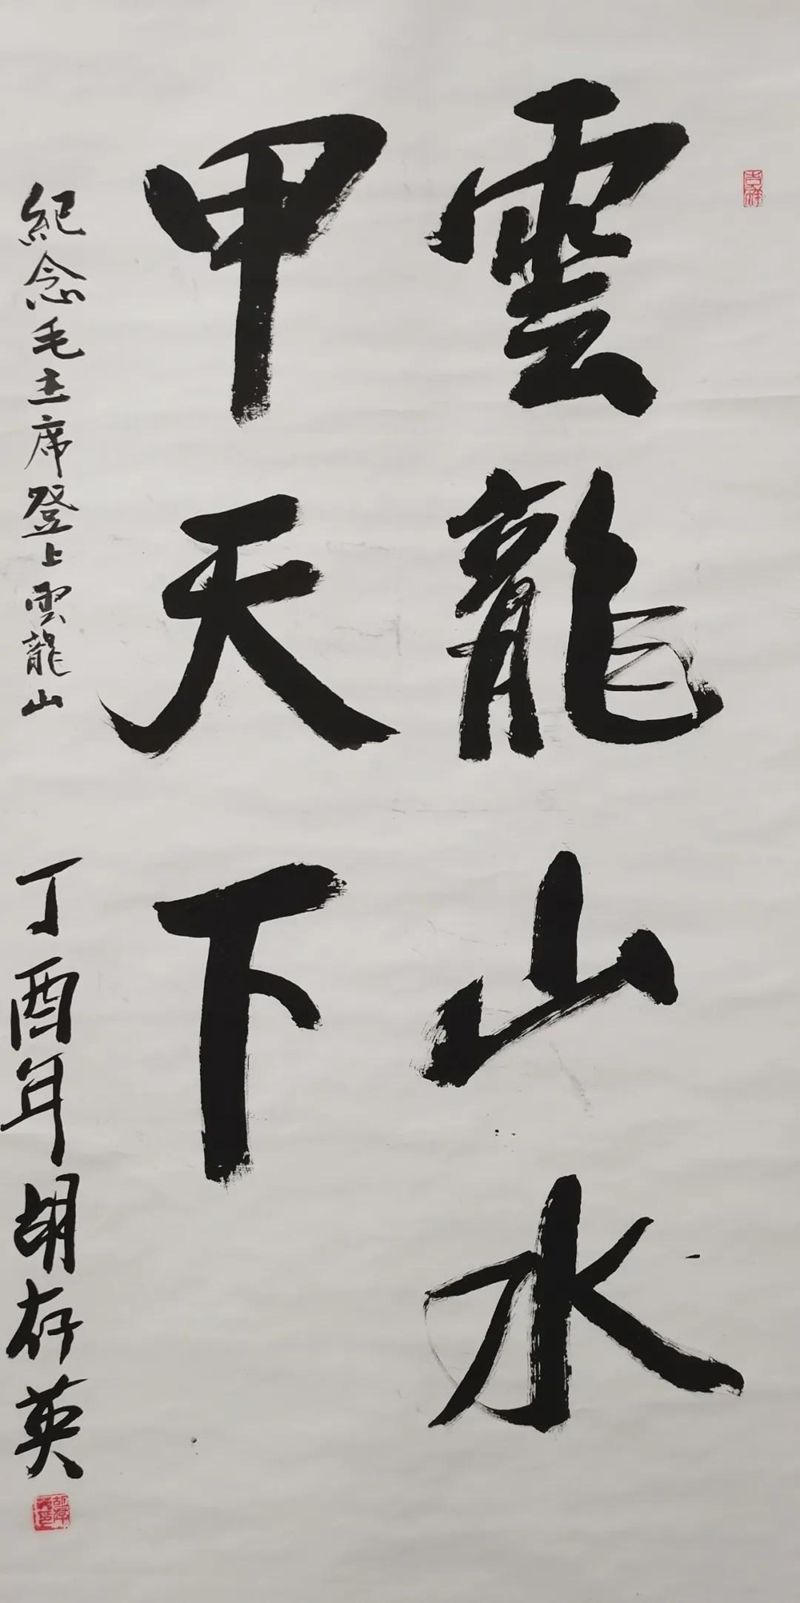 吉祥
雲龍山水
甲天下
紀念毛主席登上雲龍山
丁酉年胡存英